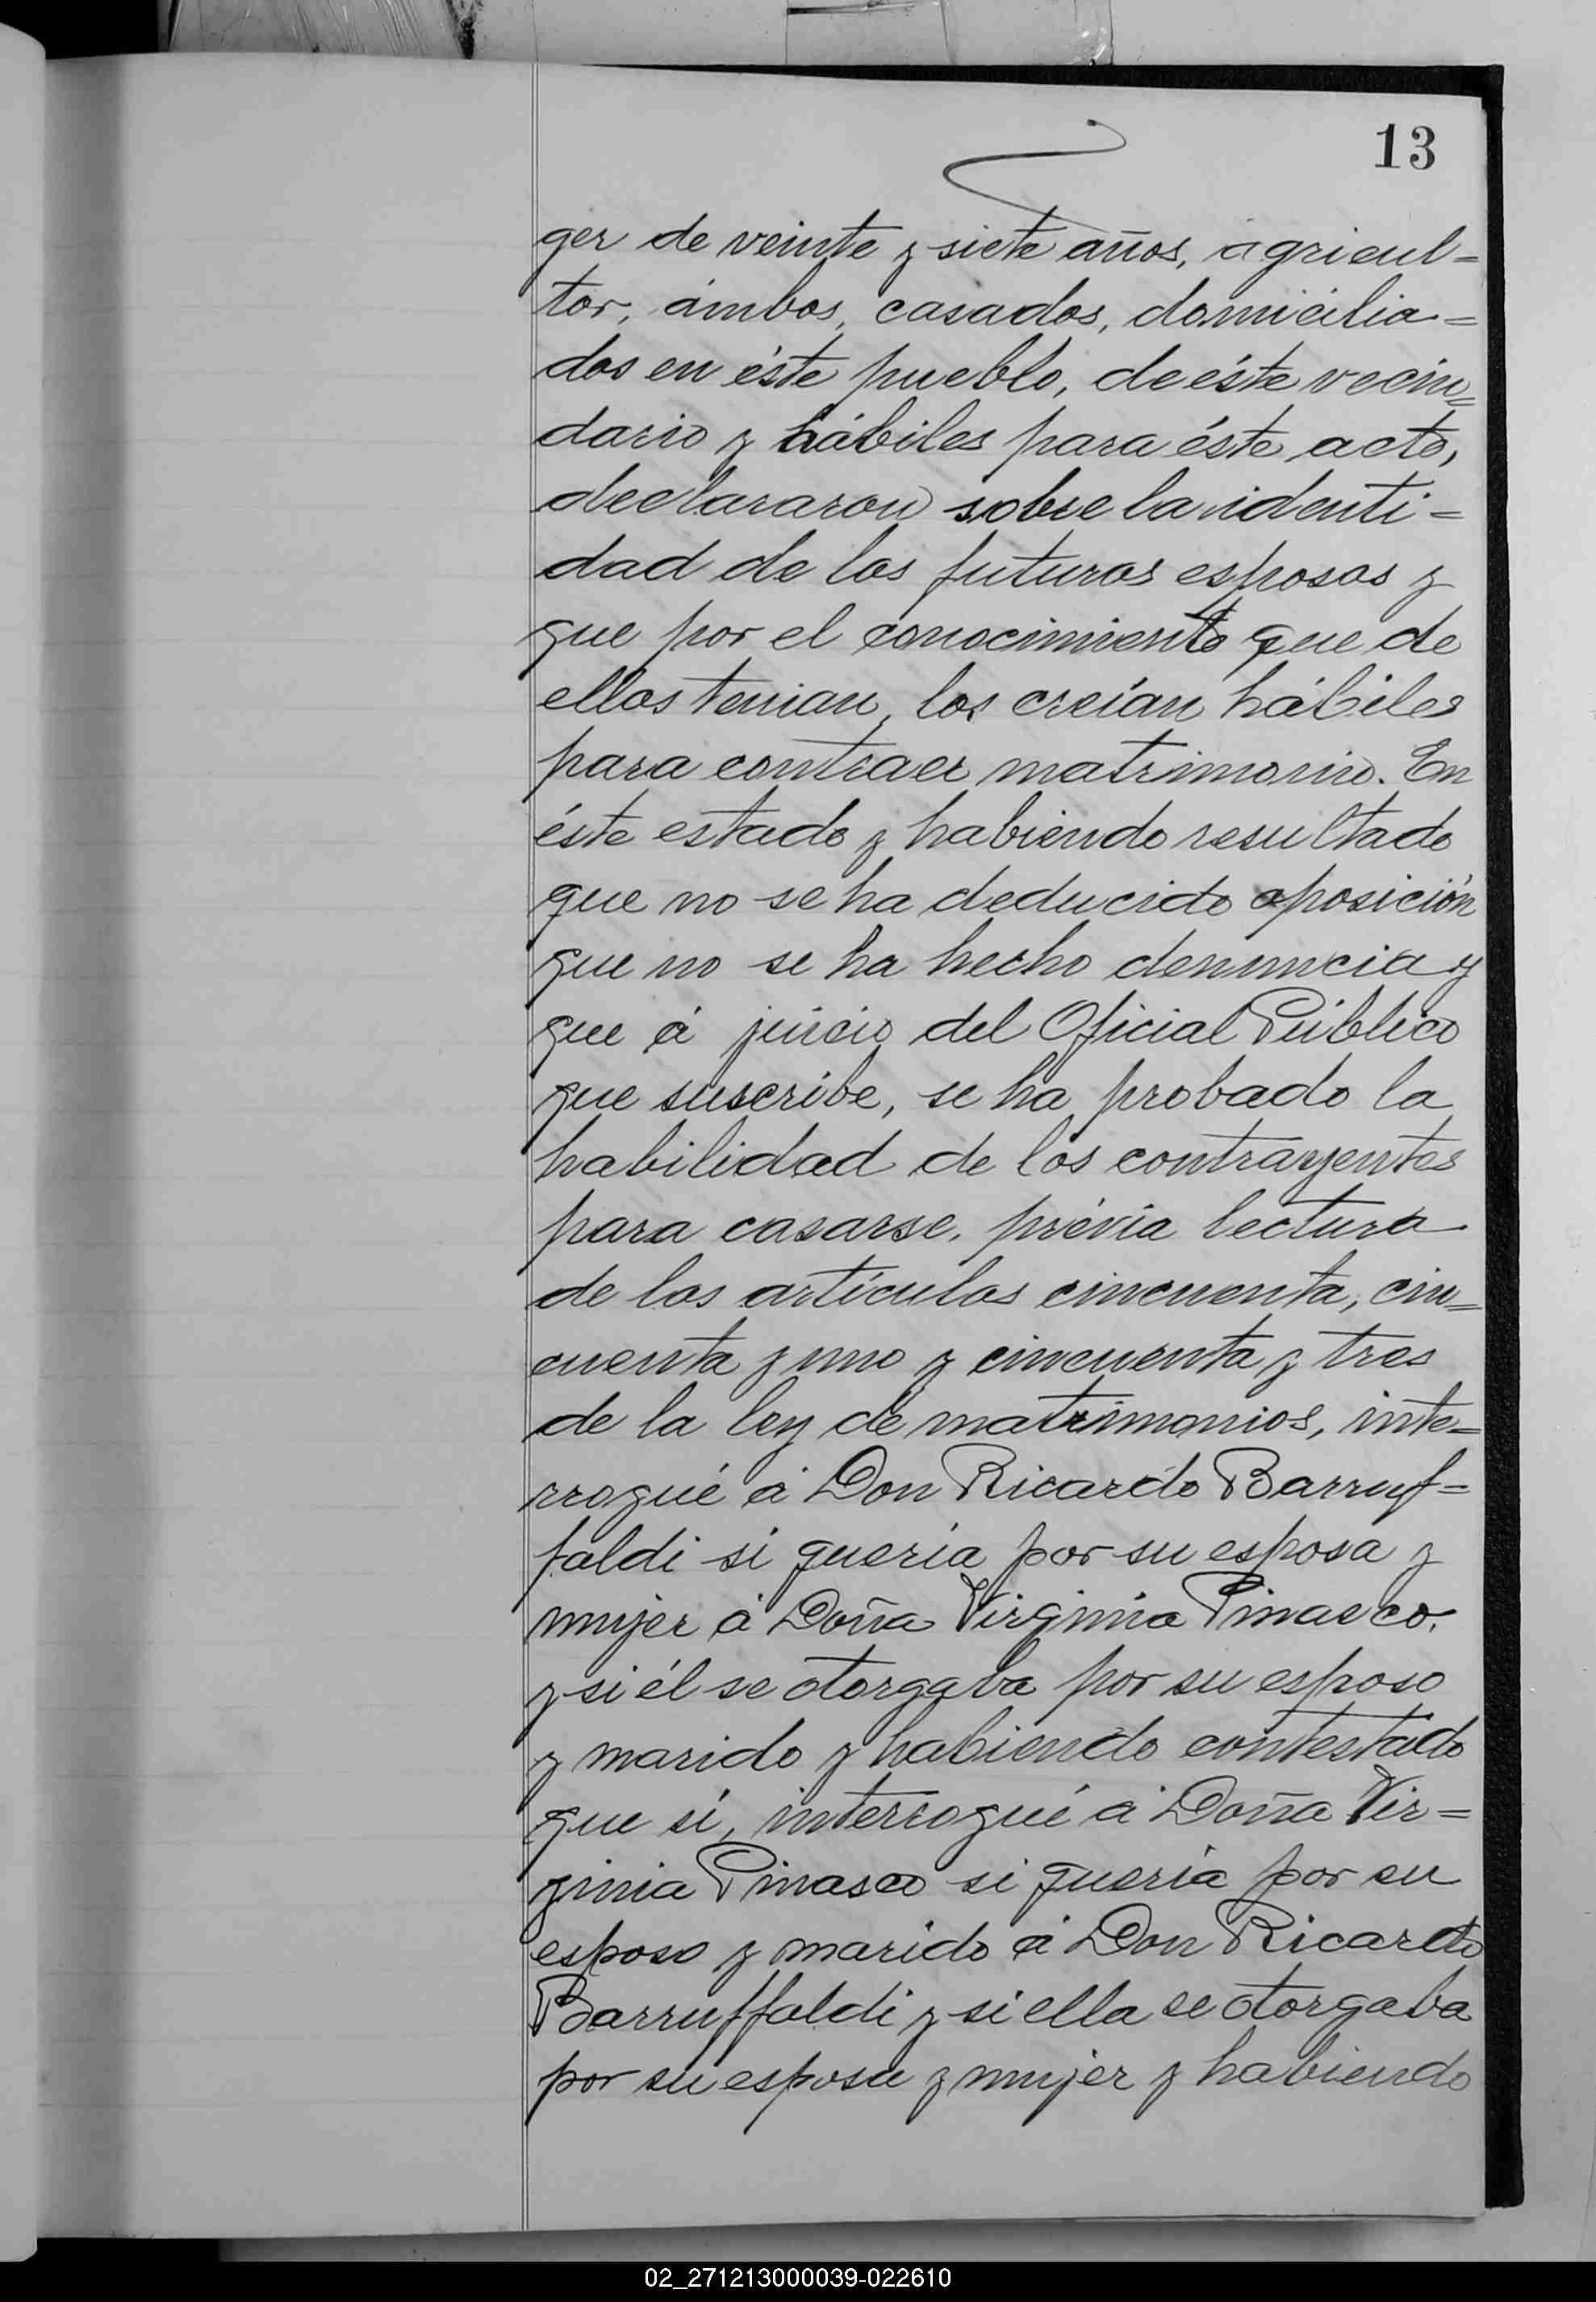 13
ger de veinte y siete años, agricul=
tor, ámbos, casados, domicilia=
dos en éste pueblo, de éste vecin=
dario y hábiles para éste acto,
declararon sobre la identi=
dad de los futuros esposos y
que por el conocimiento que de
ellos tenian, los creían hábiles
para contraer matrimonio. En
éste estado y habiendo resultado
que no se ha deducido oposición
que no se ha hecho denuncia y
que á juicio del Oficial Público
que suscribe, se ha probado la
habilidad de los contrayentes
para casarse, prévia lectura
de los artículos cincuenta, cin=
cuenta y uno y cincuenta y tres
de la ley de matrimonios, inte=
rrogué á Don Ricardo Barruf=
faldi si quería por su esposa y
mujer á Doña Virginia Pinasco,
y si él se otorgaba por su esposo
y marido y habiendo contestado
que sí, interrogué á Doña Vir=
ginia Pinasco si quería por su
esposo y marido á Don Ricardo
Barruffaldi y si ella se otorgaba
por su esposa y mujer y habiendo
02_271213000039-022610